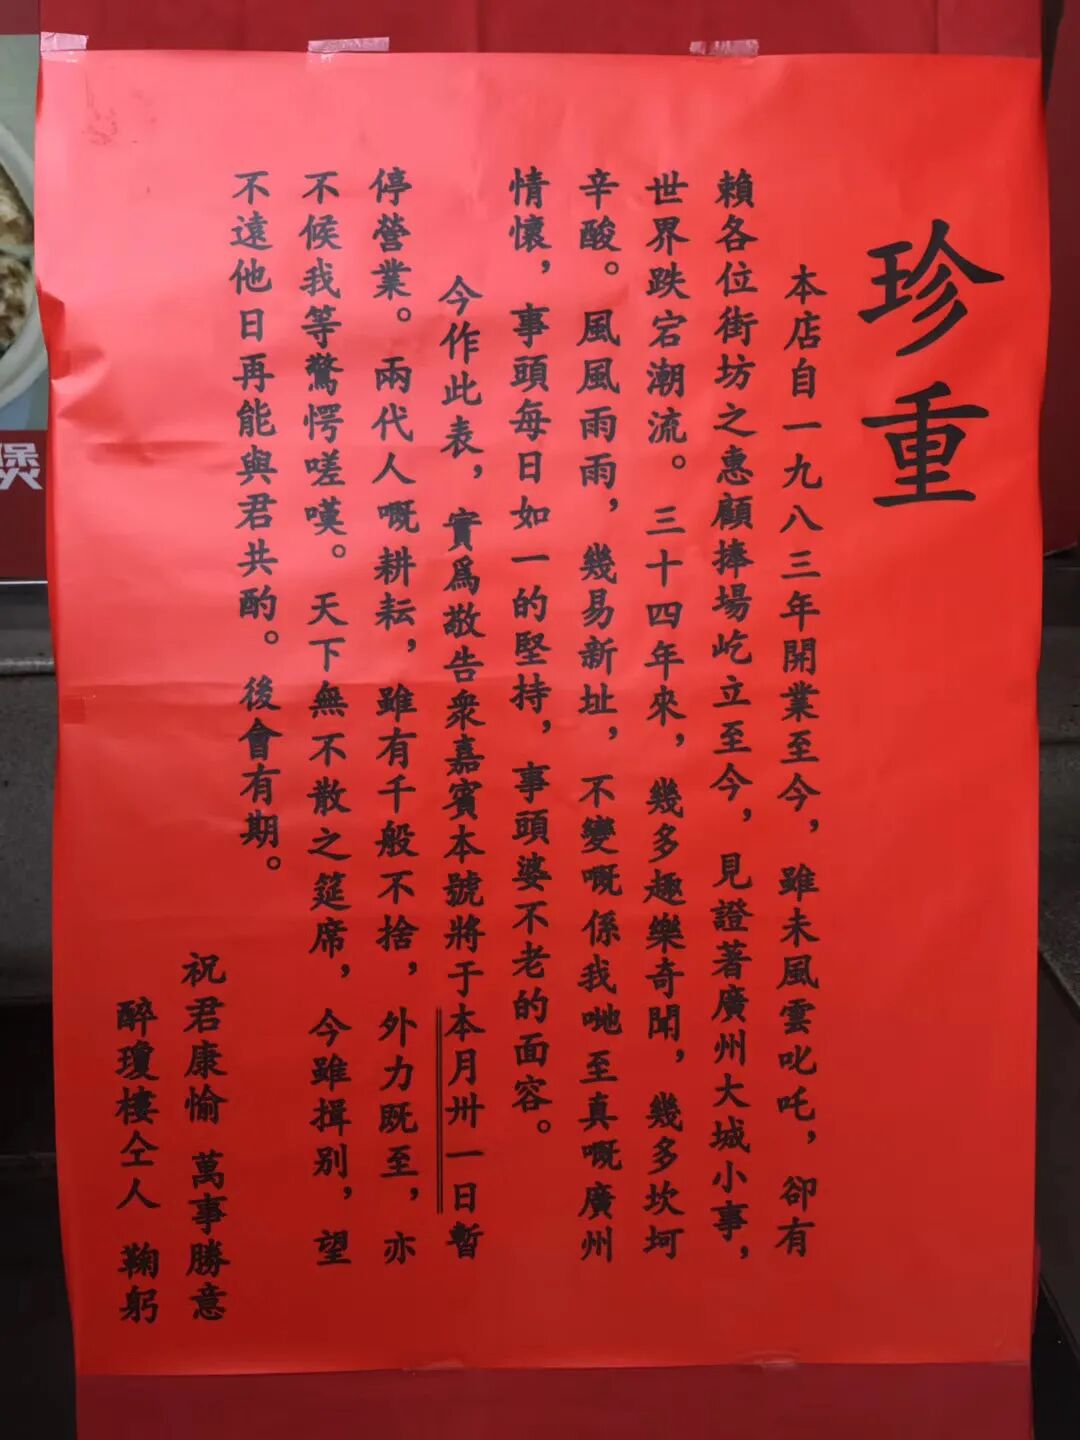 珍重
本店自一九八三年開業至今，雖未風雲叱吒，卻有
賴各位街坊之惠顧捧場屹立至今，見證著廣州大城小事，
世界跌宕潮流。三十四年來，幾多趣樂奇聞，幾多坎坷
辛酸。風風雨雨，幾易新址，不變嘅係我哋至真嘅廣州
情懷，事頭每日如一的堅持，事頭婆不老的面容。
今作此表，實爲敬告衆嘉賓本號將于本月卅一日暫
停營業。兩代人嘅耕耘，雖有千般不捨，外力既至，亦
不候我等驚愕嗟嘆。天下無不散之筵席，今雖揖别，望
不遠他日再能與君共酌。後會有期。
祝君康愉 萬事勝意
醉瓊樓仝人 鞠躬